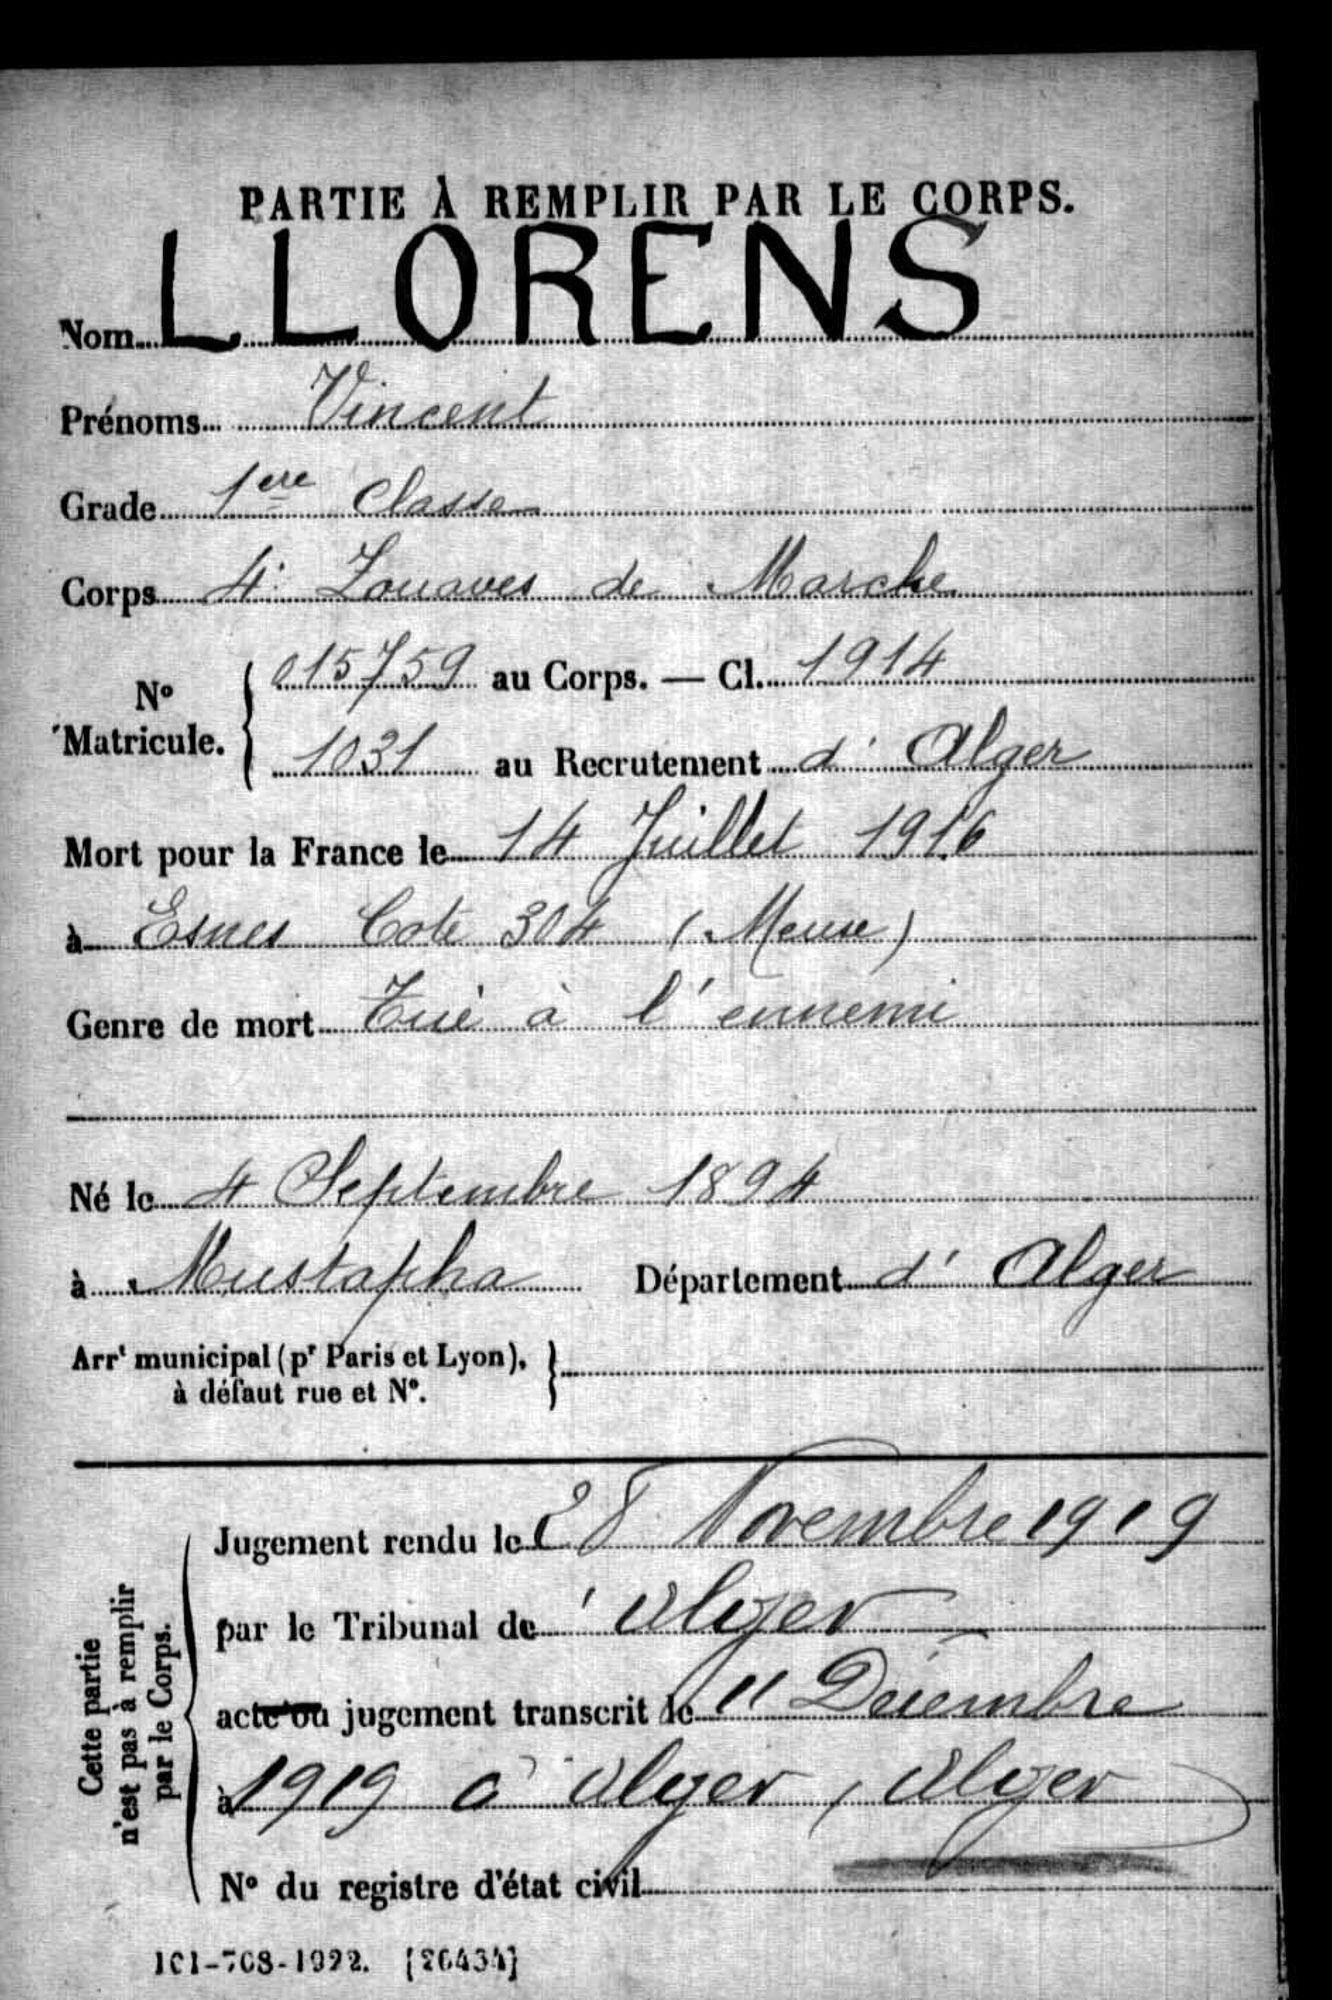 PARTIE À REMPLIR PAR LE CORPS.
Nom LLORENS
Prénoms Vincent
Grade 1ere Classe
Corps 4e Zouaves de Marche
N° Matricule. { 015759 au Corps. — Cl. 1914
1031 au Recrutement d'Alger
Mort pour la France le 14 Juillet 1916
à Esnes Cote 304 (Meuse)
Genre de mort Tué à l'ennemi
Né le 4 Septembre 1894
à Mustapha Département d'Alger
Arrt municipal (pr Paris et Lyon), }
à défaut rue et N°.
Cette partie n'est pas à remplir par le Corps.
Jugement rendu le 28 Novembre 1919
par le Tribunal de Alger
acte ou jugement transcrit le 11 Décembre
à 1919 à Alger, Alger
N° du registre d'état civil
101-708-1922. [26434]